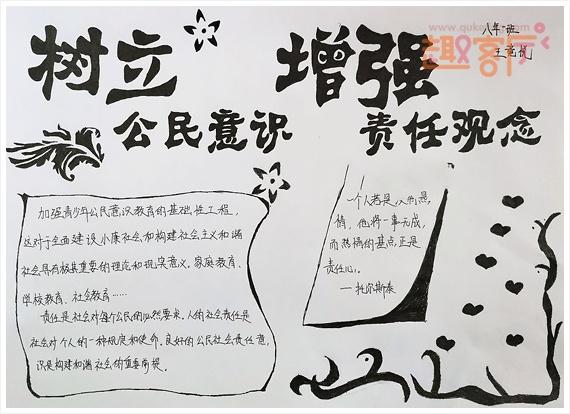 www.qukerry.com
趣客屋
八年一班
树立 增强
公民意识 责任观念
加强青少年公民意识教育的基础性工程,
这对于全面建设小康社会和构建社会主义和谐
社会具有极其重要的理论和现实意义。家庭教育、
学校教育、社会教育……
责任是社会对每个公民的必然要求。人的社会责任是
社会对个人的一种规定和使命。良好的公民社会责任意
识是构建和谐社会的重要前提。
一个人若是没有热
情,他将一事无成,
而热情的基点正是
责任心。
——托尔斯泰